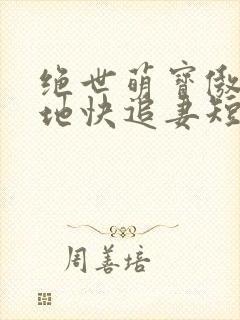 绝世萌宝傲
地快追妻短
周善培